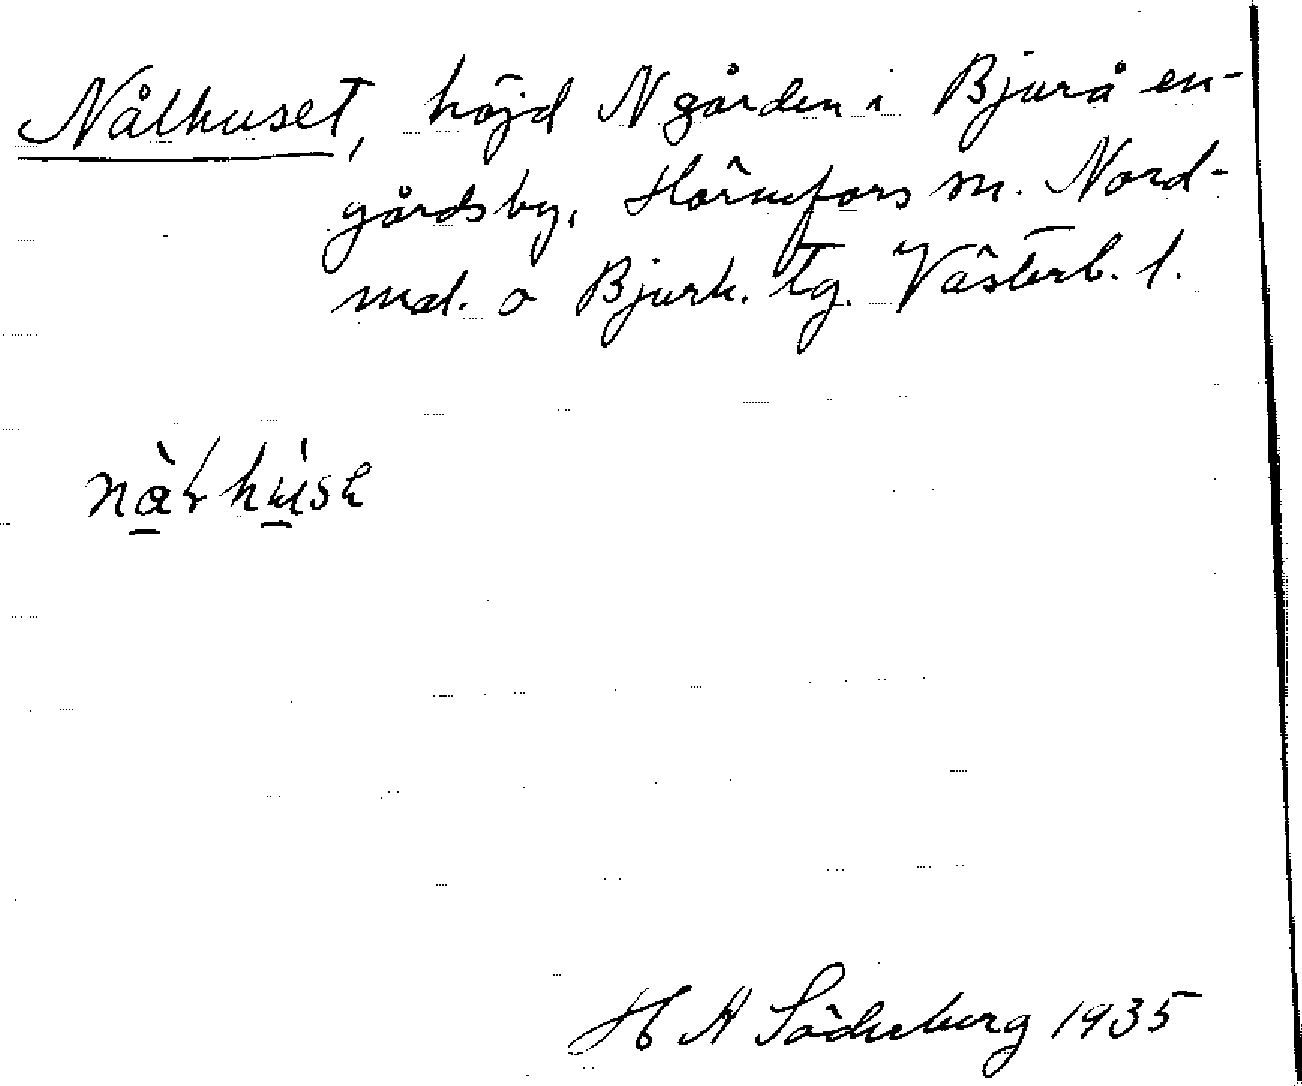 Nålhuset, höjd N gården i Bjurå en-
gårdsby, Hörnefors sn. Nord-
mal. o Bjurh. tg. Västerb. l.
H A Söderberg 1935